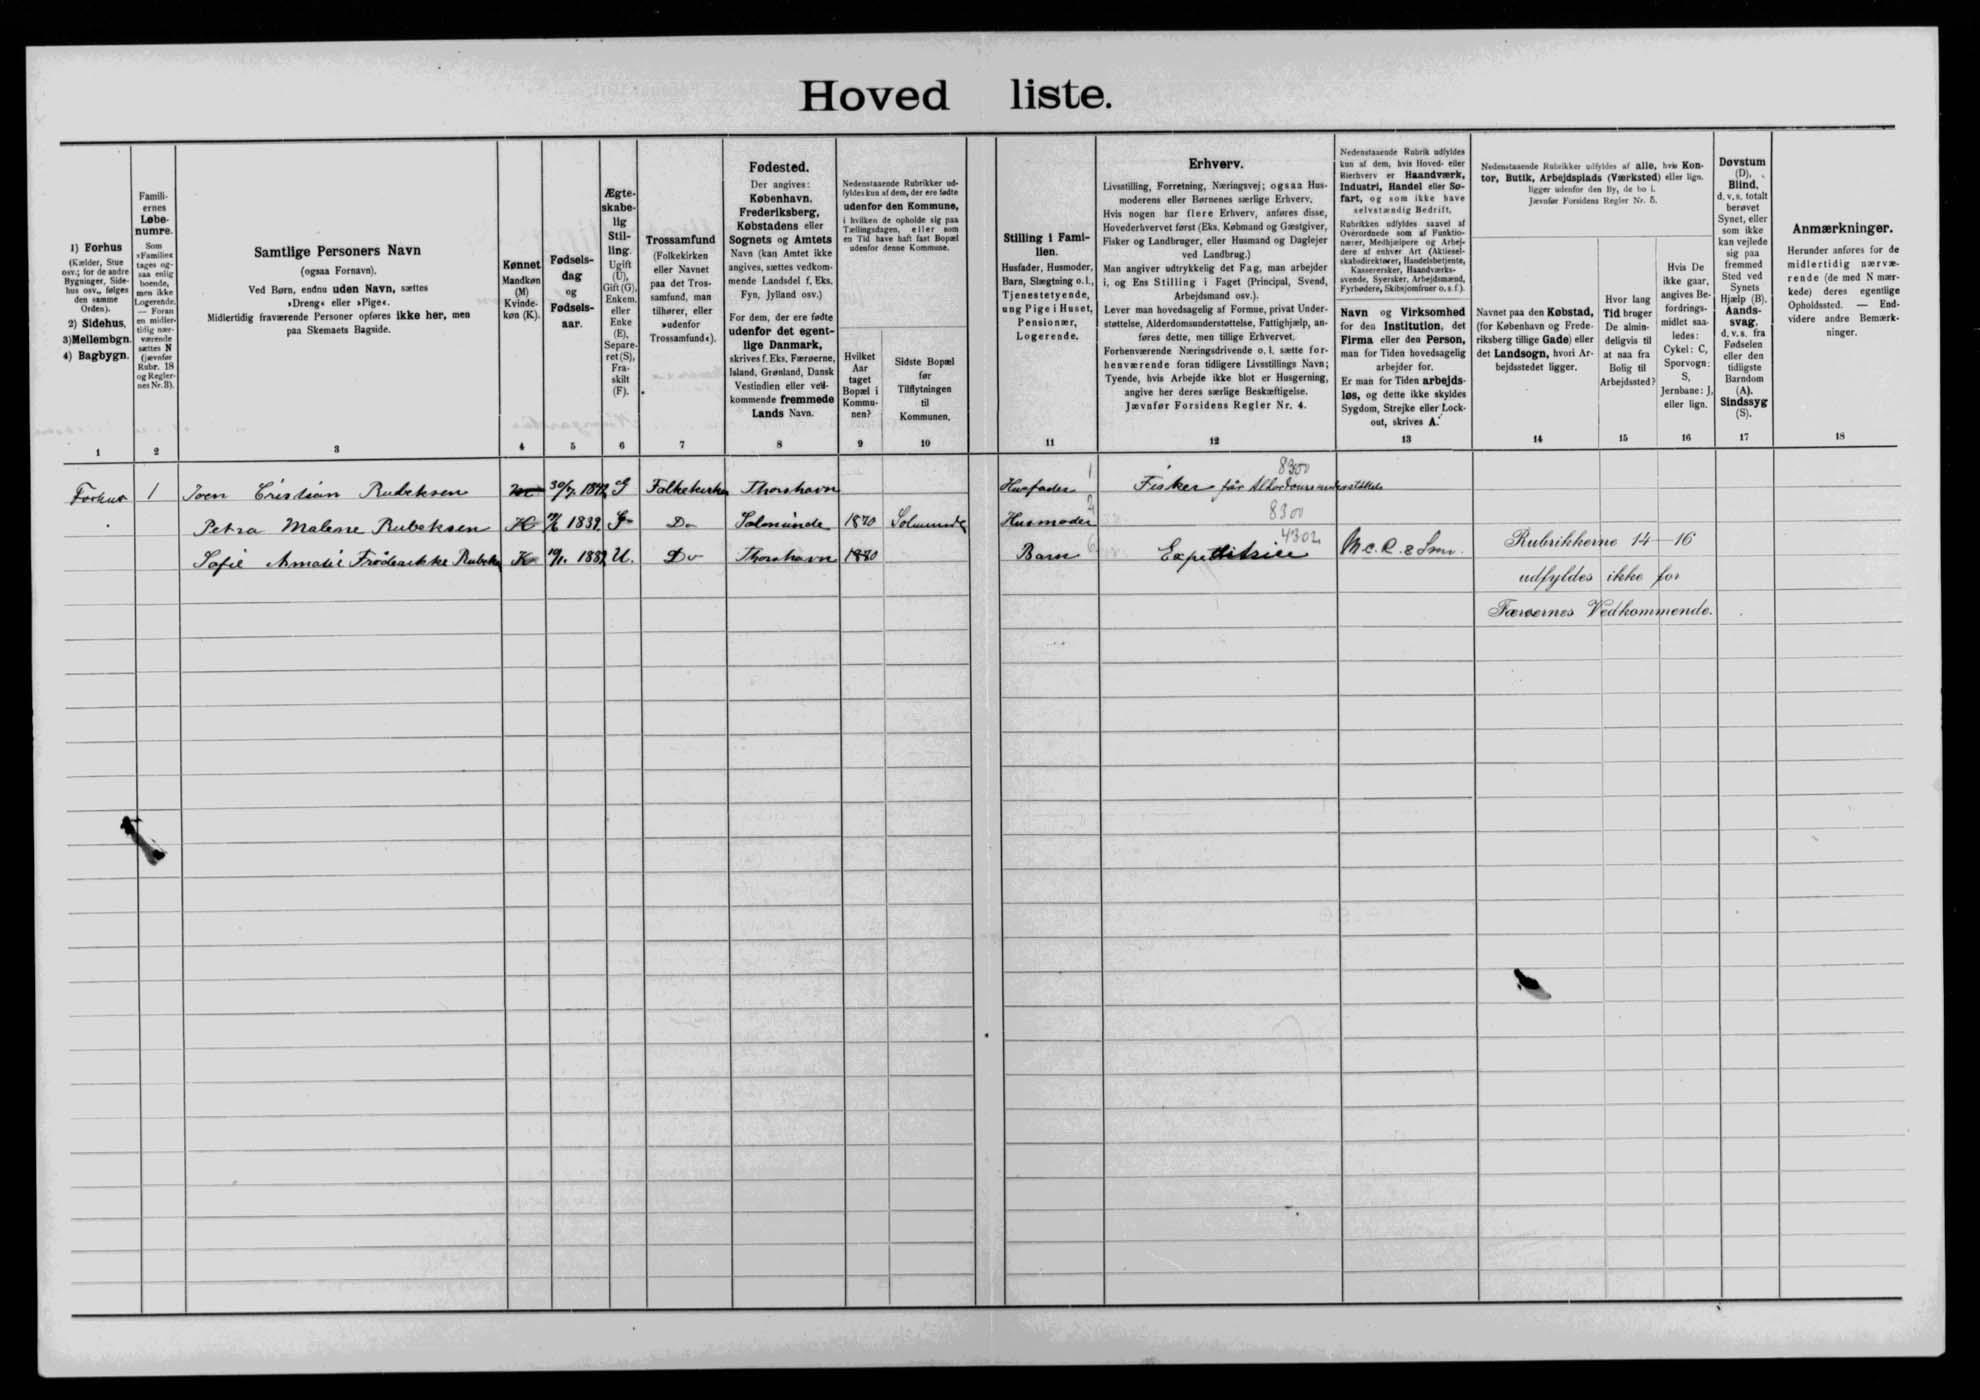 Hoved liste.
1) Forhus
(Kælder, Stue
osv.; for de andre
Bygninger, Side-
hus osv., følges
den samme
Orden).
2) Sidehus,
3) Mellembgn.
4) Bagbygn.
1
Famili-
ernes
Løbe-
numre.
Som
»Familie«
tages og-
saa enlig
boende,
men ikke
Logerende.
— Foran
en midler-
tidig nær-
værende
sættes N
(jævnfør
Rubr. 18
og Regler-
nes Nr. 3).
2
Samtlige Personers Navn
(ogsaa Fornavn).
Ved Børn, endnu uden Navn, sættes
»Dreng« eller »Pige«.
Midlertidig fraværende Personer opføres ikke her, men
paa Skemaets Bagside.
3
Kønnet
Mandkøn
(M)
Kvinde-
køn (K).
4
Fødsels-
dag
og
Fødsels-
aar.
5
Ægte-
skabe-
lig
Stil-
ling.
Ugift
(U),
Gift (G),
Enkem.
eller
Enke
(E),
Separe-
ret (S),
Fra-
skilt
(F).
6
Trossamfund
(Folkekirken
eller Navnet
paa det Tros-
samfund, man
tilhører, eller
»udenfor
Trossamfund«).
7
Fødested.
Der angives:
København,
Frederiksberg,
Købstadens eller
Sognets og Amtets
Navn (kan Amtet ikke
angives, sættes vedkom-
mende Landsdel f. Eks.
Fyn, Jylland osv.)
For dem, der ere fødte
udenfor det egent-
lige Danmark,
skrives f. Eks. Færøerne,
Island, Grønland, Dansk
Vestindien eller ved-
kommende fremmede
Lands Navn.
8
Nedenstaaende Rubrikker ud-
fyldes kun af dem, der ere fødte
udenfor den Kommune,
i hvilken de opholde sig paa
Tællingsdagen, eller som
en Tid have haft fast Bopæl
udenfor denne Kommune.
Hvilket
Aar
taget
Bopæl i
Kommu-
nen?
9
Sidste Bopæl
før
Tilflytningen
til
Kommunen.
10
Stilling i Fami-
lien.
Husfader, Husmoder,
Barn, Slægtning o. l.,
Tjenestetyende,
ung Pige i Huset,
Pensionær,
Logerende.
11
Erhverv.
Livsstilling, Forretning, Næringsvej; ogsaa Hus-
moderens eller Børnenes særlige Erhverv.
Hvis nogen har flere Erhverv, anføres disse,
Hovederhvervet først (Eks. Købmand og Gæstgiver,
Fisker og Landbruger, eller Husmand og Daglejer
ved Landbrug.)
Man angiver udtrykkelig det Fag, man arbejder
i, og Ens Stilling i Faget (Principal, Svend,
Arbejdsmand osv.).
Lever man hovedsagelig af Formue, privat Under-
støttelse, Alderdomsunderstøttelse, Fattighjælp, an-
føres dette, men tillige Erhvervet.
Forhenværende Næringsdrivende o. l. sætte for-
henværende foran tidligere Livsstillings Navn;
Tyende, hvis Arbejde ikke blot er Husgerning,
angive her deres særlige Beskæftigelse.
Jævnfør Forsidens Regler Nr. 4.
12
Nedenstaaende Rubrik udfyldes
kun af dem, hvis Hoved- eller
Bierhverv er Haandværk,
Industri, Handel eller Sø-
fart, og som ikke have
selvstændig Bedrift.
Rubrikken udfyldes saavel af
Overordnede som af Funktio-
nærer, Medhjælpere og Arbej-
dere af enhver Art (Aktiesel-
skabsdirektører, Handelsbetjente,
Kassererskер, Haandværks-
svende, Syersker, Arbejdsmænd,
Fyrbødere, Skibsjomfruer o. s. f.).
Navn og Virksomhed
for den Institution, det
Firma eller den Person,
man for Tiden hovedsagelig
arbejder for.
Er man for Tiden arbejds-
løs, og dette ikke skyldes
Sygdom, Strejke eller Lock-
out, skrives A.
13
Nedenstaaende Rubrikker udfyldes af alle, hvis Kon-
tor, Butik, Arbejdsplads (Værksted) eller lign.
ligger udenfor den By, de bo i.
Jævnfør Forsidens Regler Nr. 5.
Navnet paa den Købstad,
(for København og Frede-
riksberg tillige Gade) eller
det Landsogn, hvori Ar-
bejdsstedet ligger.
14
Hvor lang
Tid bruger
De almin-
deligvis til
at naa fra
Bolig til
Arbejdssted?
15
Hvis De
ikke gaar,
angives Be-
fordrings-
midlet saa-
ledes:
Cykel: C,
Sporvogn:
S,
Jernbane: J,
eller lign.
16
Døvstum
(D),
Blind,
d. v. s. totalt
berøvet
Synet, eller
som ikke
kan vejlede
sig paa
fremmed
Sted ved
Synets
Hjælp (B).
Aands-
svag,
d. v. s. fra
Fødselen
eller den
tidligste
Barndom
(A).
Sindssyg
(S).
17
Anmærkninger.
Herunder anføres for de
midlertidig nærvæ-
rende (de med N mær-
kede) deres egentlige
Opholdssted. — End-
videre andre Bemærk-
ninger.
18
Forhus 1 Joen Cristian Rubeksen 30/7. 1842 G Folkekirken Thorshavn Husfader 1 Fisker får Alderdomsunderstöttelse 8300
Petra Malene Rubeksen K 1839 G Do Solmunde 1870 Solmunde Husmoder 2 8300
Sofie Amalie Frederikke Rubeksen K 1882 U. Do Thorshavn 1880 Barn 6 Expeditrice 4302 M. C. R. & Søn.
Rubrikkerne 14—16
udfyldes ikke for
Færøernes Vedkommende.